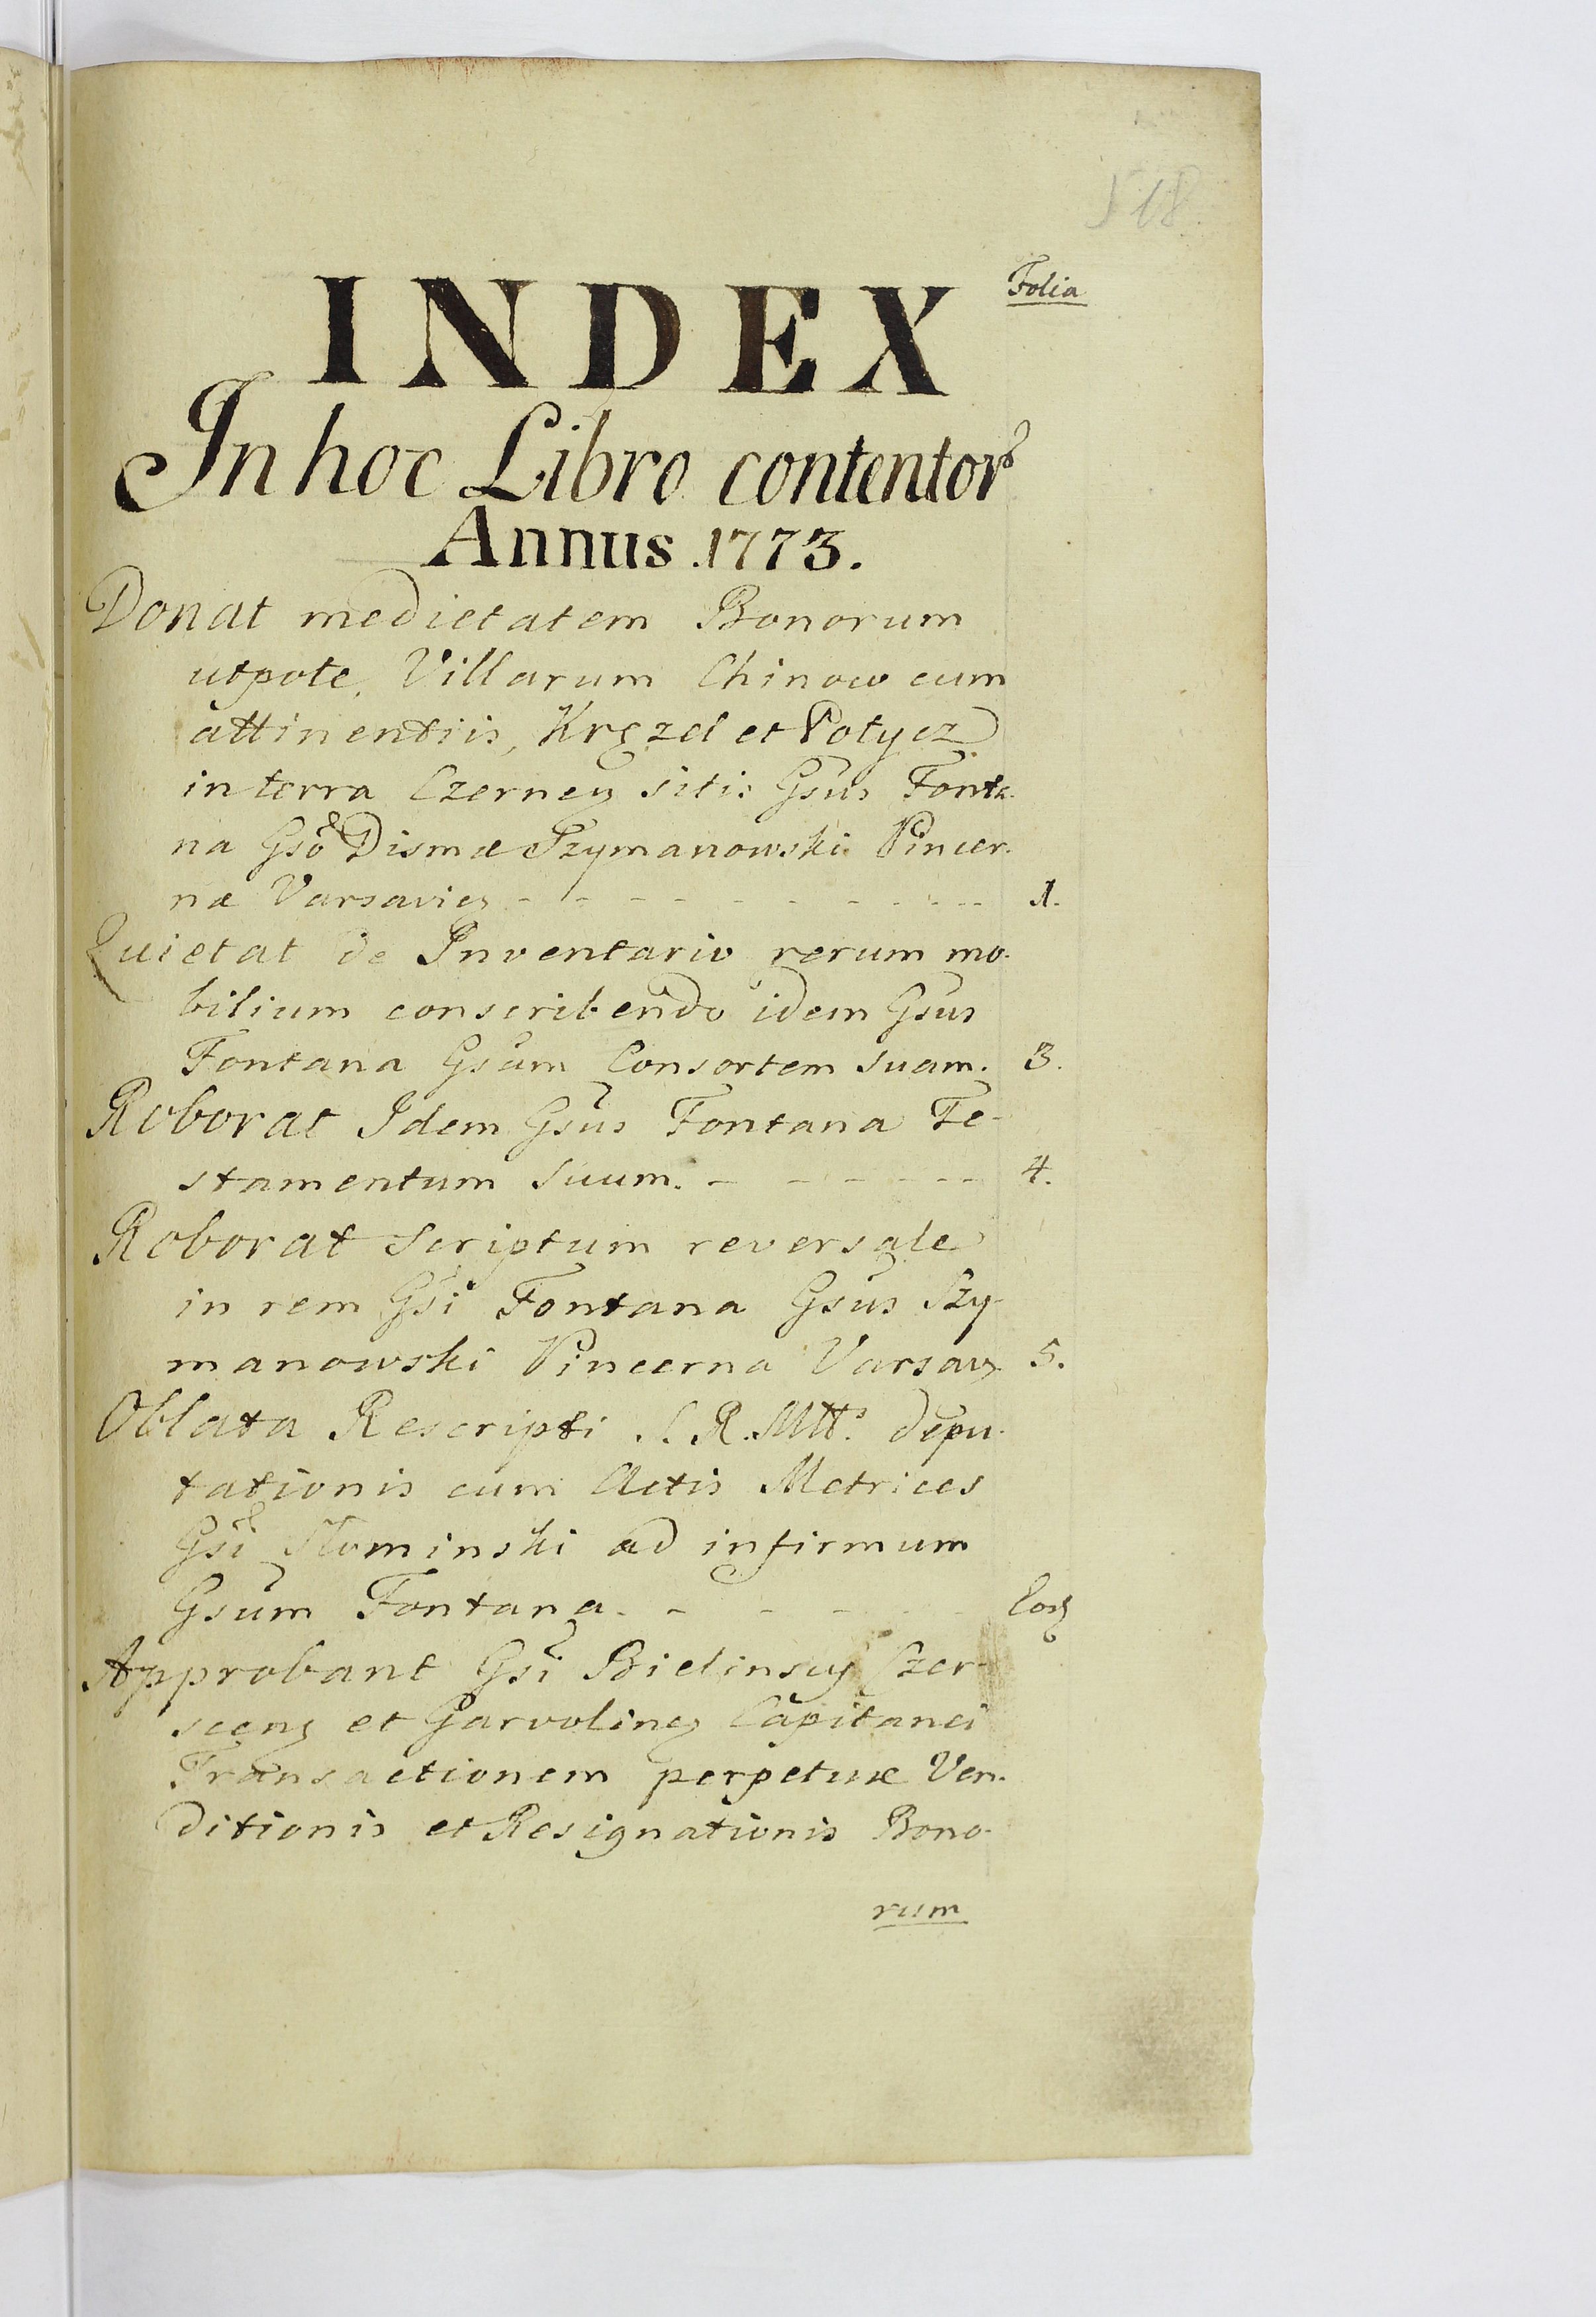 518
Folia
INDEX
In hoc Libro contentor
Annus 1773.
Donat medietatem Bonorum
utpote, Villarum Chinow cum
attinentiis, Kręzel et Potycz
in terra Czernen sitis Gsus Fonta-
na Gso Dismæ Szymanowski Pincer-
næ Varsavien - - - - - - - - - - 1.
Quietat de Inventario rerum mo-
bilium conscribendo idem Gsus
Fontana Gsum Consortem suam. 3.
Roborat Idem Gsus Fontana Te-
stamentum suum. - - - - - - 4.
Roborat Scriptum reversale
in rem Gsi Fontana Gsus Szy-
manowski Pincerna Varsav 5.
Oblata Rescripti S. R. Mtts. depu-
tationis cum Actis Metrices
Gsi Słominski ad infirmum
Gsum Fontana. - - - - - Eod
Approbant Gsi Bielinscy Czer-
scen et Garvolinen Capitanei
Transactionem perpetuæ Ven-
ditionis et Resignationis Bono-
rum